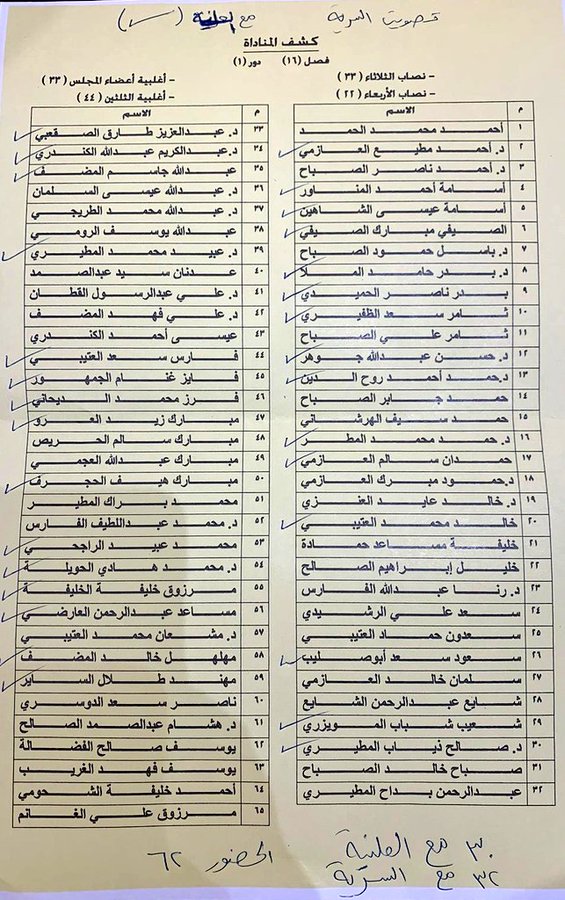 تصويت السرية مع العلنية (✓)
كشف المناداة
فصل (١٦) دور (١)
- نصاب الثلاثاء (٣٣) - أغلبية أعضاء المجلس (٣٣)
- نصاب الأربعاء (٢٢) - أغلبية الثلثين (٤٤)
م الاسم
١ أحمد محمد الحمد
٢ د. أحمد مطيع العازمي
٣ د. أحمد ناصر الصباح
٤ أسامة أحمد المناور
٥ أسامة عيسى الشاهين
٦ الصيفي مبارك الصيفي
٧ د. باسل حمود الصباح
٨ د. بدر حامد الملا
٩ بدر ناصر الحميدي
١٠ ثامر سعد الظفيري
١١ ثامر علي الصباح
١٢ د. حسن عبدالله جوهر
١٣ د. حمد أحمد روح الدين
١٤ حمد جابر الصباح
١٥ حمد سيف الهرشاني
١٦ د. حمد محمد المطر
١٧ حمدان سالم العازمي
١٨ د. حمود مبرك العازمي
١٩ د. خالد عايد العنزي
٢٠ خالد محمد العتيبي
٢١ خليفة مساعد حمادة
٢٢ خليل إبراهيم الصالح
٢٣ د. رنا عبدالله الفارس
٢٤ سعد علي الرشيدي
٢٥ سعدون حماد العتيبي
٢٦ سعود سعد أبوصليب
٢٧ سلمان خالد العازمي
٢٨ شايع عبدالرحمن الشايع
٢٩ شعيب شباب المويزري
٣٠ د. صالح ذياب المطيري
٣١ صباح خالد الصباح
٣٢ عبدالرحمن بداح المطيري
م الاسم
٣٣ د. عبدالعزيز طارق الصقعبي
٣٤ د. عبدالكريم عبدالله الكندري
٣٥ عبدالله جاسم المضف
٣٦ د. عبدالله عيسى السلمان
٣٧ د. عبدالله محمد الطريجي
٣٨ عبدالله يوسف الرومي
٣٩ د. عبيد محمد المطيري
٤٠ عدنان سيد عبدالصمد
٤١ د. علي عبدالرسول القطان
٤٢ د. علي فهد المضف
٤٣ عيسى أحمد الكندري
٤٤ فارس سعد العتيبي
٤٥ فايز غنام الجمهور
٤٦ فرز محمد الديحاني
٤٧ مبارك زيد العرو
٤٨ مبارك سالم الحريص
٤٩ مبارك عبدالله العجمي
٥٠ مبارك هيف الحجرف
٥١ محمد براك المطير
٥٢ د. محمد عبداللطيف الفارس
٥٣ محمد عبيد الراجحي
٥٤ د. محمد هادي الحويلة
٥٥ مرزوق خليفة الخليفة
٥٦ مساعد عبدالرحمن العارضي
٥٧ د. مشعان محمد العتيبي
٥٨ مهلهل خالد المضف
٥٩ مهند طلال الساير
٦٠ ناصر سعد الدوسري
٦١ د. هشام عبدالصمد الصالح
٦٢ يوسف صالح الفضالة
٦٣ يوسف فهد الغريب
٦٤ أحمد خليفة الشحومي
٦٥ مرزوق علي الغانم
٣٠ مع العلنية
٣٢ مع السرية
الحضور ٦٢